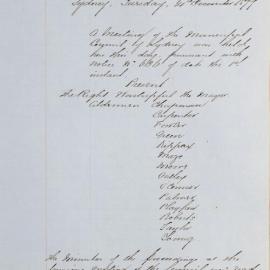 Sydney, Tuesday, December 1877
A Meeting of the Municipal
Council of Sydney was held
this day pursuant with
notice No of date the 1st
instant
Present
The Right Worshipful the Mayor
Aldermen Chapman
Carpenter
Fowler
Green
Kippax
Moore
Oatley
O'Connor
Palmer
Playfair
Roberts
Taylor
Young
The Minutes of the proceedings at the
meeting of the Council were read